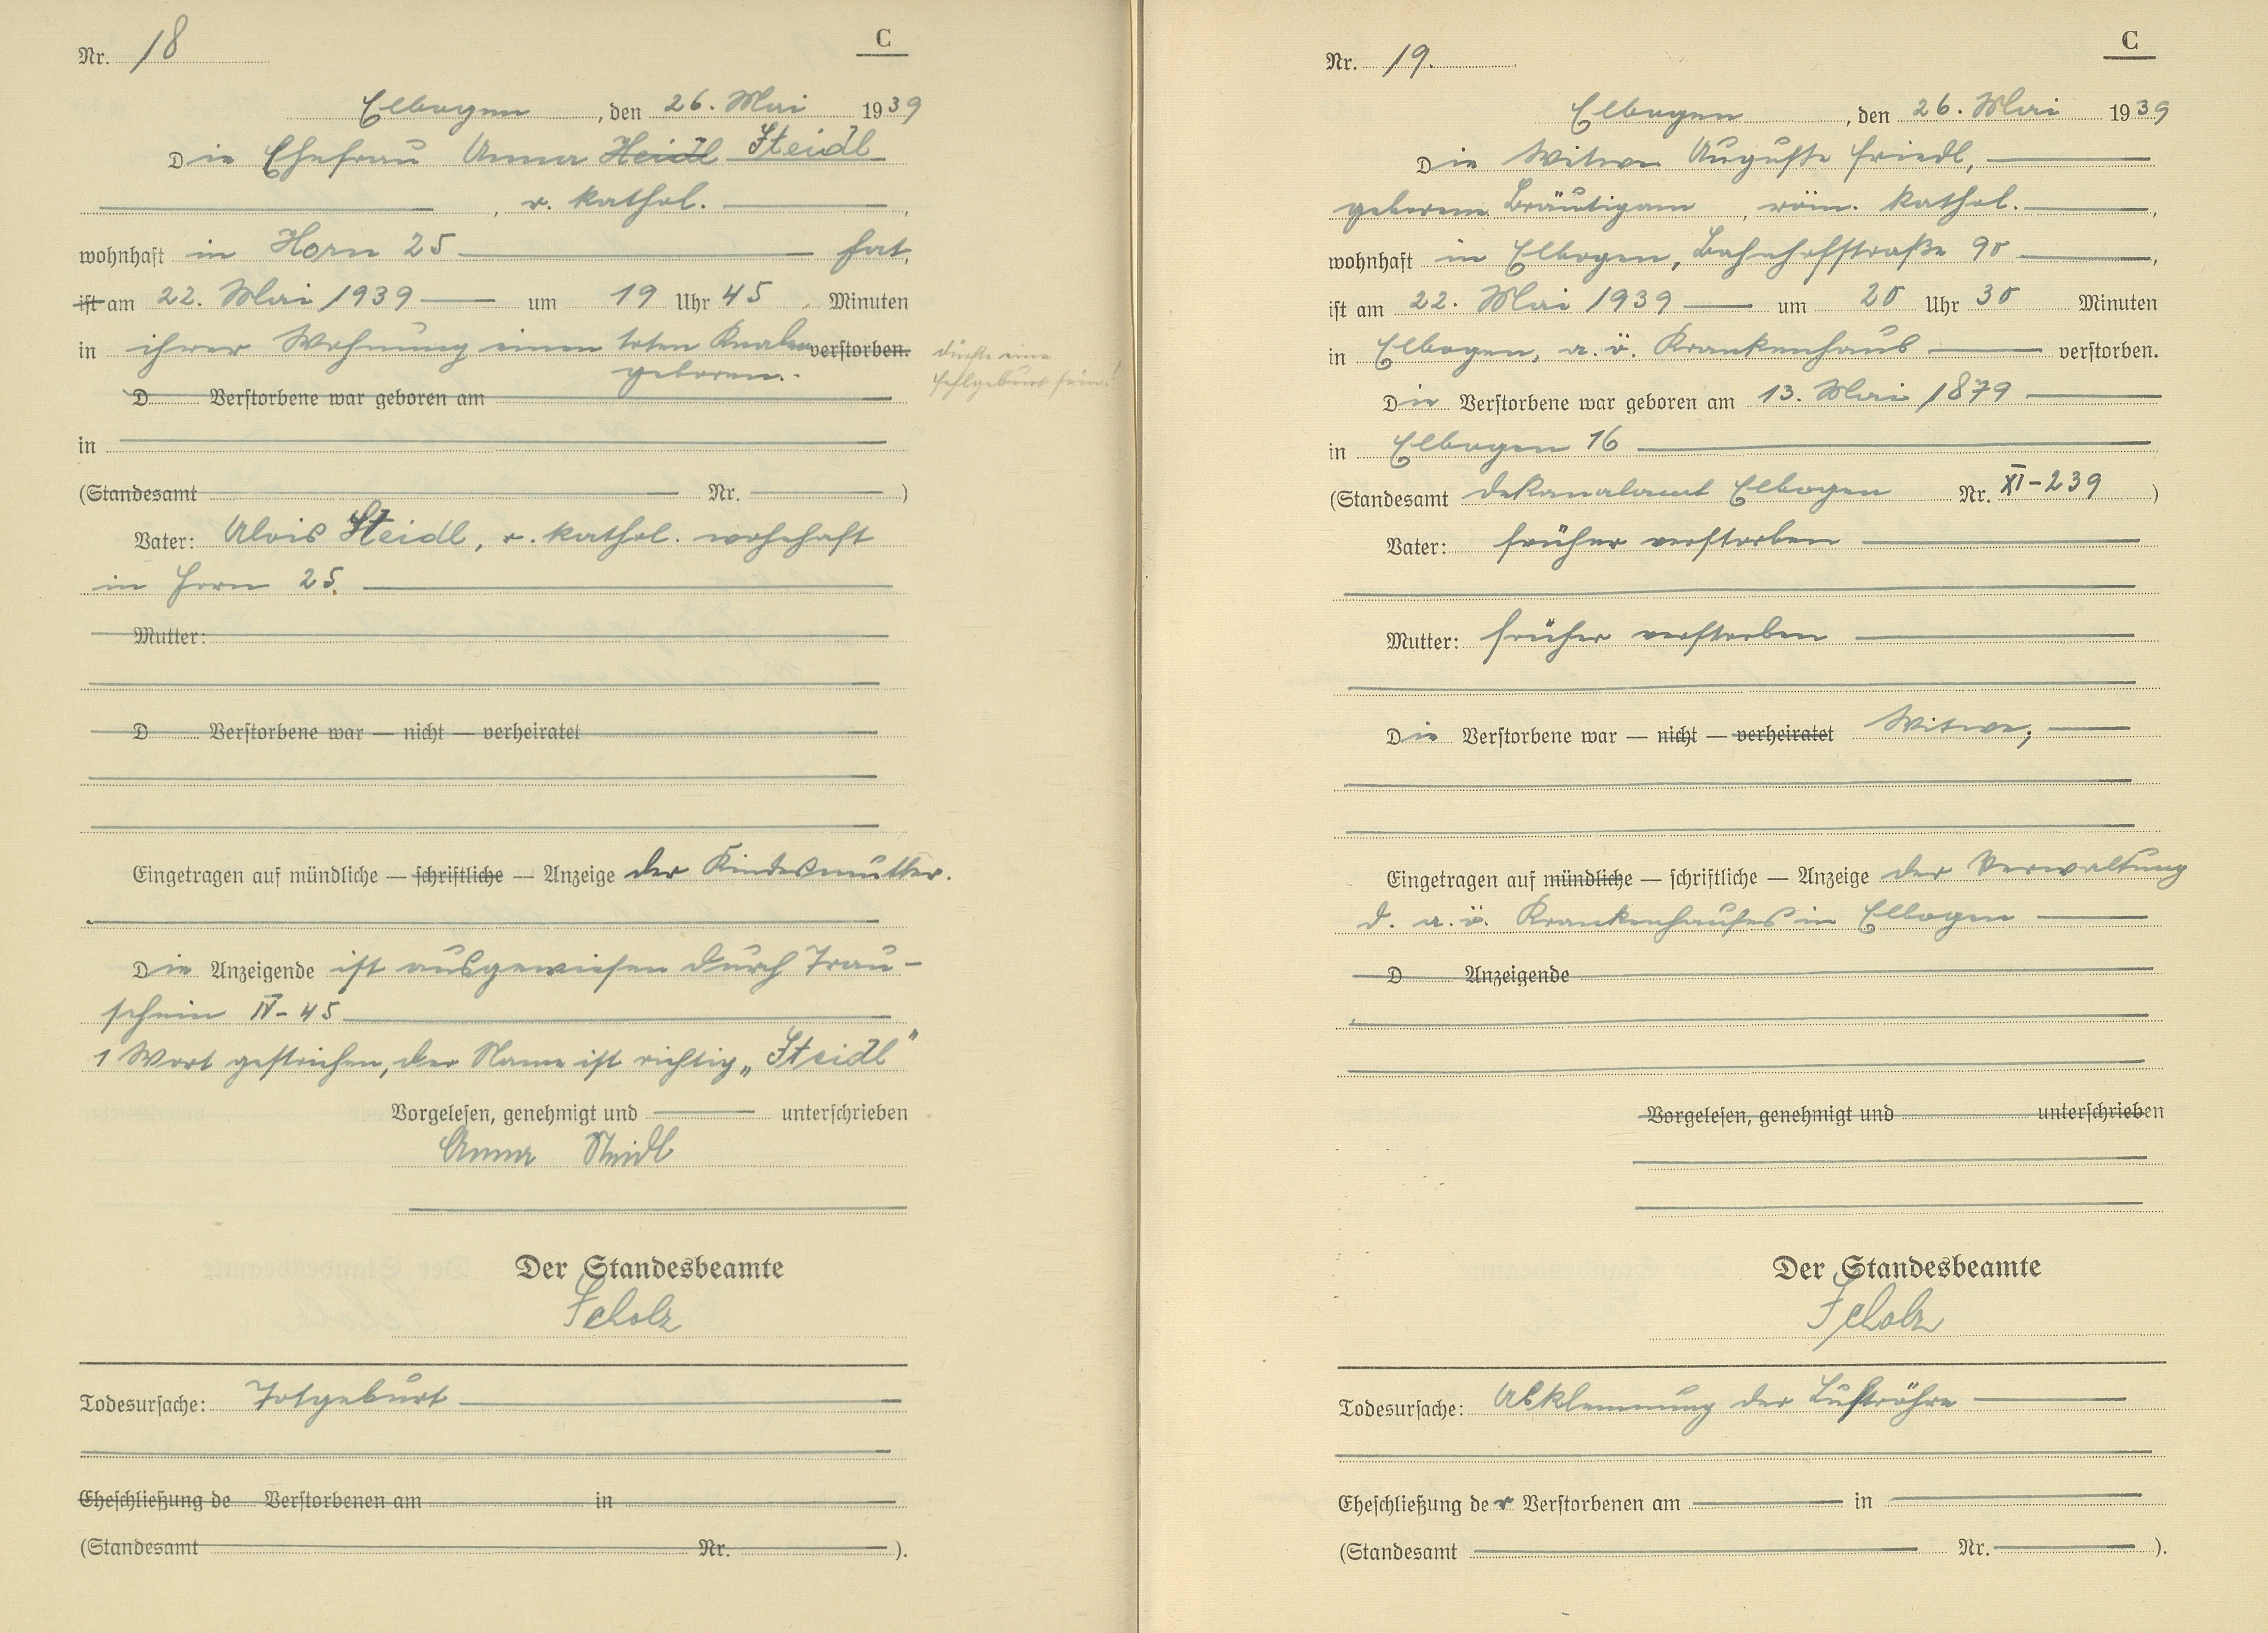 Nr. 18
C
Elbogen, den 26. Mai 1939
Die Ehefrau Anna Heidl Steidl
, r. kathol. ,
wohnhaft in Horn 25 hat,
ist am 22. Mai 1939 um 19 Uhr 45 Minuten
in ihrer Wohnung einen toten Knaben verstorben.
geboren.
dürfte eine
Fehlgeburt sein!
D Verstorbene war geboren am
in
(Standesamt Nr. )
Vater: Alois Steidl, r. kathol. wohnhaft
in Horn 25.
Mutter:
D Verstorbene war — nicht — verheiratet
Eingetragen auf mündliche — schriftliche — Anzeige der Kindesmutter.
Die Anzeigende ist ausgewiesen durch Trau-
schein IV-45
1 Wort gestrichen, der Name ist richtig „Steidl"
Vorgelesen, genehmigt und unterschrieben
Anna Steidl
Der Standesbeamte
Scholz
Todesursache: Totgeburt
Eheschließung de Verstorbenen am in
(Standesamt Nr. ).
Nr. 19.
C
Elbogen, den 26. Mai 1939
Die Witwe Auguste Friedl,
geborene Bräutigam, röm. kathol. ,
wohnhaft in Elbogen, Bahnhofstraße 90 ,
ist am 22. Mai 1939 um 20 Uhr 30 Minuten
in Elbogen, a. ö. Krankenhaus verstorben.
Die Verstorbene war geboren am 13. Mai 1879
in Elbogen 16
(Standesamt Dekanalamt Elbogen Nr. XI-239 )
Vater: früher verstorben
Mutter: früher verstorben
Die Verstorbene war — nicht — verheiratet Witwe;
Eingetragen auf mündliche — schriftliche — Anzeige der Verwaltung
d. a. ö. Krankenhauses in Elbogen
D Anzeigende
Vorgelesen, genehmigt und unterschrieben
Der Standesbeamte
Scholz
Todesursache: Abklemmung der Luftröhre
Eheschließung der Verstorbenen am in
(Standesamt Nr. ).